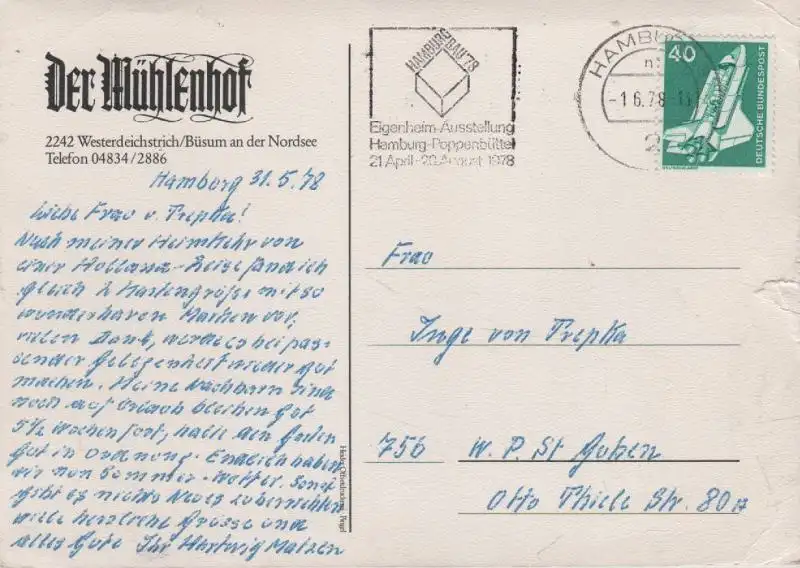 Der Mühlenhof
2242 Westerdeichstrich/Büsum an der Nordsee
Telefon 04834/2886
Hamburg 31.5.78
Liebe Frau v. Trepka!
Nach meiner Heimkehr von
einer Holland-Reise fand ich
gleich 2 Kartengrüße mit so
wunderbaren Marken vor,
vielen Dank, werde es bei pas-
sender Gelegenheit wieder gut
machen. Meine Nachbarn sind
noch auf Urlaub bleiben gut
5 1/2 Wochen fort, halte den Garten
gut in Ordnung. Endlich haben
wir nun Sommer-Wetter. Sonst
gibt es nichts Neues zu berichten
viele herzliche Grüsse und
alles Gute Ihr Hartwig Matzen
HAMBURG BAU '78
Eigenheim-Ausstellung
Hamburg-Poppenbüttel
21. April-20. August 1978
HAMBURG
-1.6.78
2
40
DEUTSCHE BUNDESPOST
Frau
Inge von Trepka
756 W. P. St
Otto Thiele Str. 80a